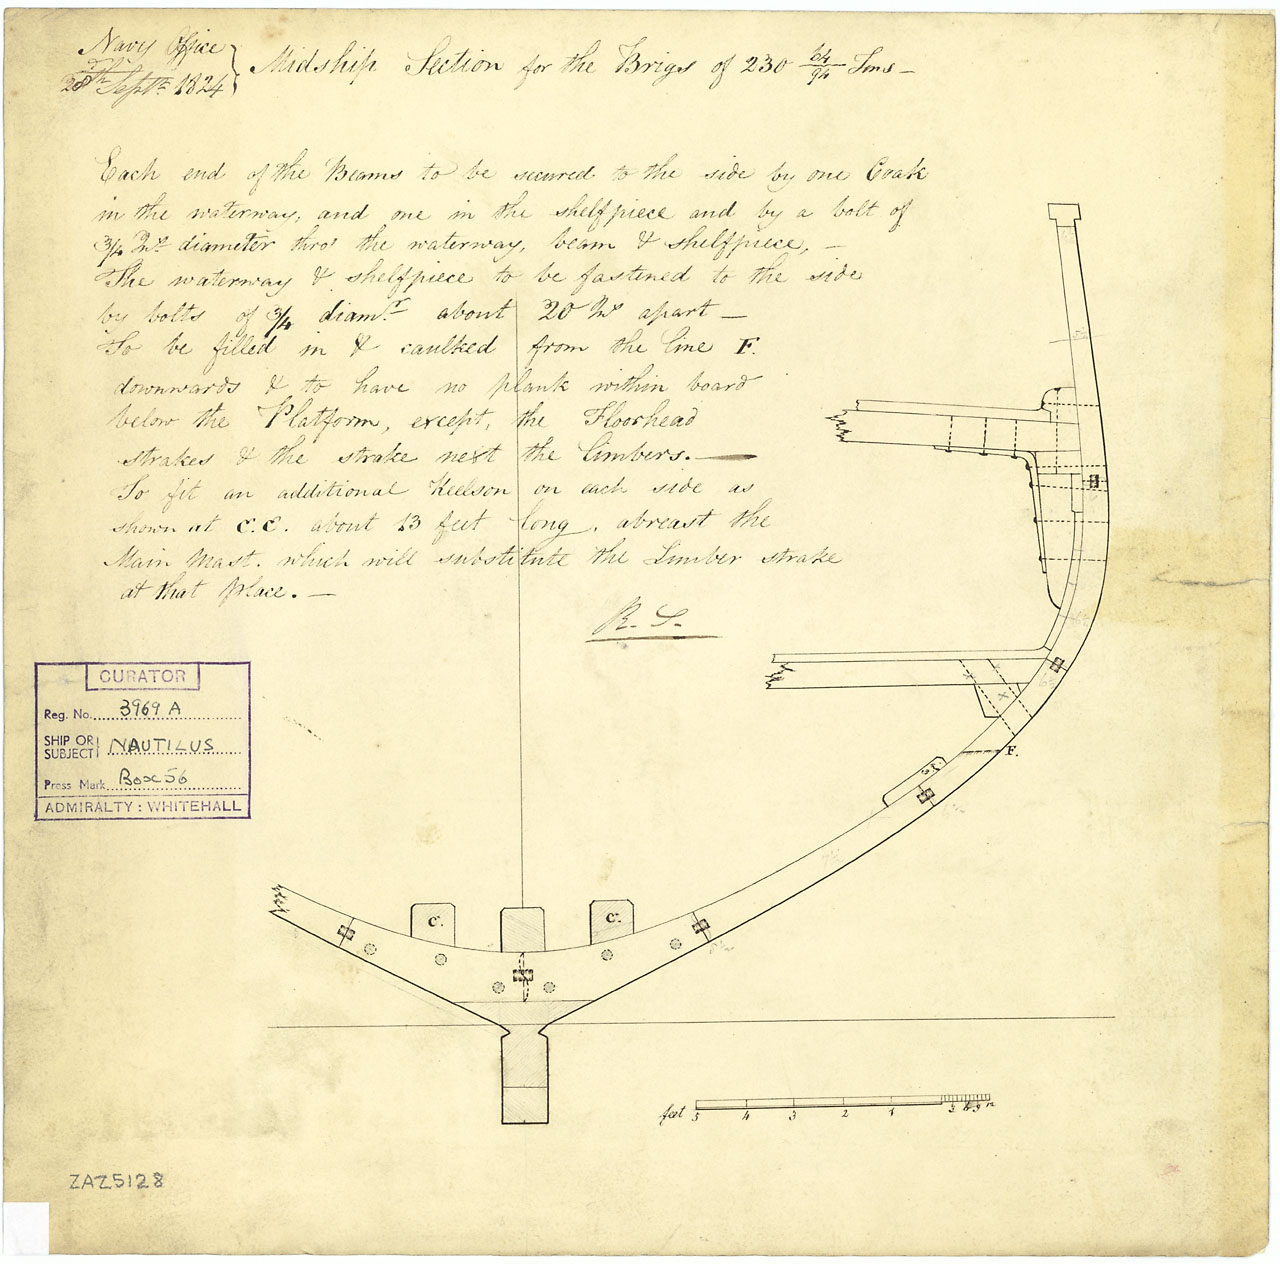 Navy Office
28th Septr 1824
Midship Section for the Brigs of 230 64/94 Tons —
Each end of the Beams to be secured to the side by one Coak
in the waterway, and one in the shelfpiece and by a bolt of
3/4 Ins diameter thro' the waterway, beam & shelfpiece, —
The waterway & shelfpiece to be fastened to the side
by bolts of 3/4 diamr about 20 Ins apart —
To be filled in & caulked from the line F.
downwards & to have no plank within board
below the Platform, except, the Floorhead
strakes & the strake next the limbers. —
To fit an additional Keelson on each side as
shown at C.C. about 13 feet long, abreast the
Main Mast. which will substitute the Limber strake
at that place. —
R. S.
CURATOR
Reg. No. 3969 A
SHIP OR SUBJECT NAUTILUS
Press Mark Box 56
ADMIRALTY : WHITEHALL
F.
C.
C.
feet 5 4 3 2 1 3 6 9 12
ZAZ5128